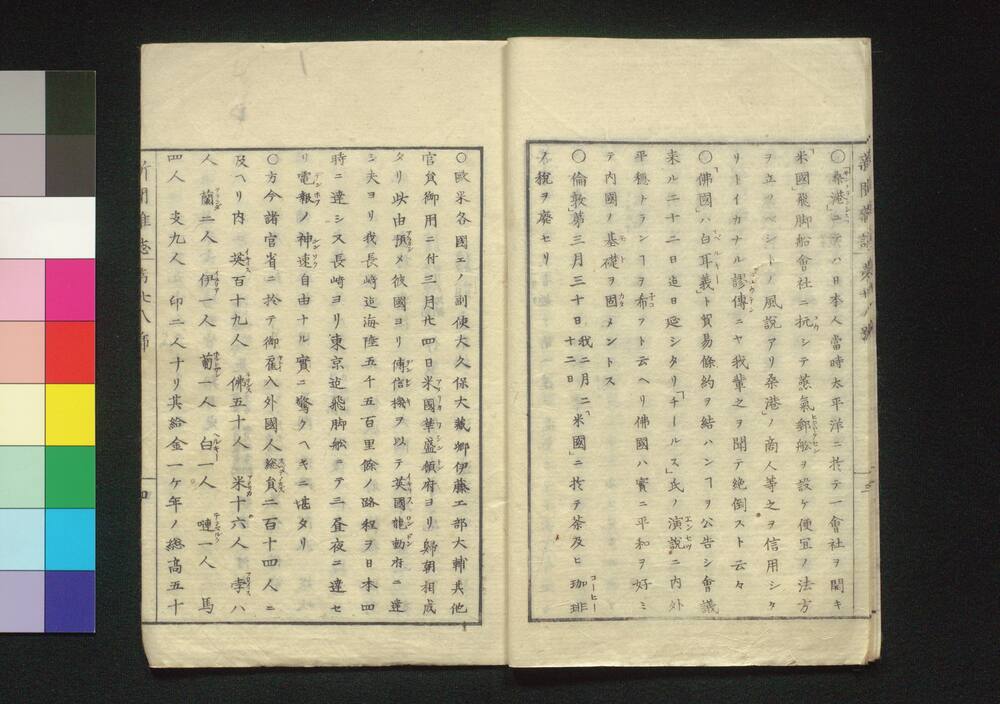 〇桑港ニテハ日本人當時太平洋ニ於テ一會社ヲ開キ
「米國」飛脚船會社ニ抗シテ蒸氣郵舩ヲ設ケ便宜ノ法方
ヲ立ツベシトノ風說アリ桑港」ノ商人等之ヲ信用シタ
リトイカナル謬傳ニヤ我輩之ヲ聞テ絶倒スト云々
〇「佛國」ハ「白耳義」ト貿易條約ヲ結ハンヿヲ公告シ會議
来ル二十二日迠日延シタリ「チールス」氏ノ演說ニ内外
平穩トランヿヲ布フト云ヘリ佛國ハ實ニ平和ヲ好ミ
テ内國ノ基礎ヲ固メントス
〇倫敦第三月三十日我二月二十二日「米國」ニ於テ茶及ヒ珈琲
ノ稅ヲ廢セリ
〇欧米各國エノ副使大久保大藏卿伊藤工部大輔其他
官員御用ニ付三月廿四日米國華盛頓府ヨリ歸朝相成
タリ此由預メ彼國ヨリ傳信機ヲ以テ英國龍動府ニ達
シ夫ヨリ我長崎迠海陸五千五百里餘ノ路程ヲ日本四
時ニ達シス長崎ヨリ東京迠飛脚舩ニテ三昼夜ニ達セ
リ電報ノ神速自由ナル實ニ驚クヘキニ堪タリ
〇方今諸官省ニ於テ御雇入外國人総員二百十四人ニ
及ヘリ内 英百十九人 佛五十人 米十六人 孛八
人 蘭二人 伊一人 葡一人 白一人 嗹一人 馬
四人 支九人 印二人ナリ其給金一ケ年ノ總高五十
新聞雜誌 第七八號 四